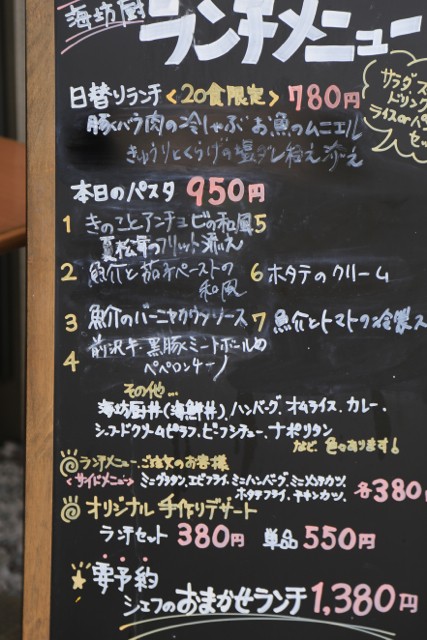 海坊厨
ランチメニュー
サラダ、ス
ドリンク
ライスorパン
セット
日替りランチ <20食限定> 780円
豚バラ肉の冷しゃぶ お魚のムニエル
きゅうりとくらげの塩ダレ和え 添え
本日のパスタ 950円
1 きのことアンチョビの和風 5
夏松茸のフリット添え
2 魚介と茄子ペーストの 6 ホタテのクリーム
和風
3 魚介のバーニャカウダソース 7 魚介とトマトの冷製ス
4 前沢牛・黒豚ミートボールの
ペペロンチーノ
その他…
海坊厨丼(海鮮丼)、ハンバーグ、オムライス、カレー、
シーフードクリームピラフ、ビーフシチュー、ナポリタン
など、色々あります!
ランチメニューご注文のお客様
<サイドメニュー> ミニグラタン、エビフライ、ミニハンバーグ、ミニメンチカツ、
ホタテフライ、チキンカツ、 各380円
オリジナル 手作りデザート
ランチセット 380円 単品 550円
要予約
シェフのおまかせランチ 1,380円